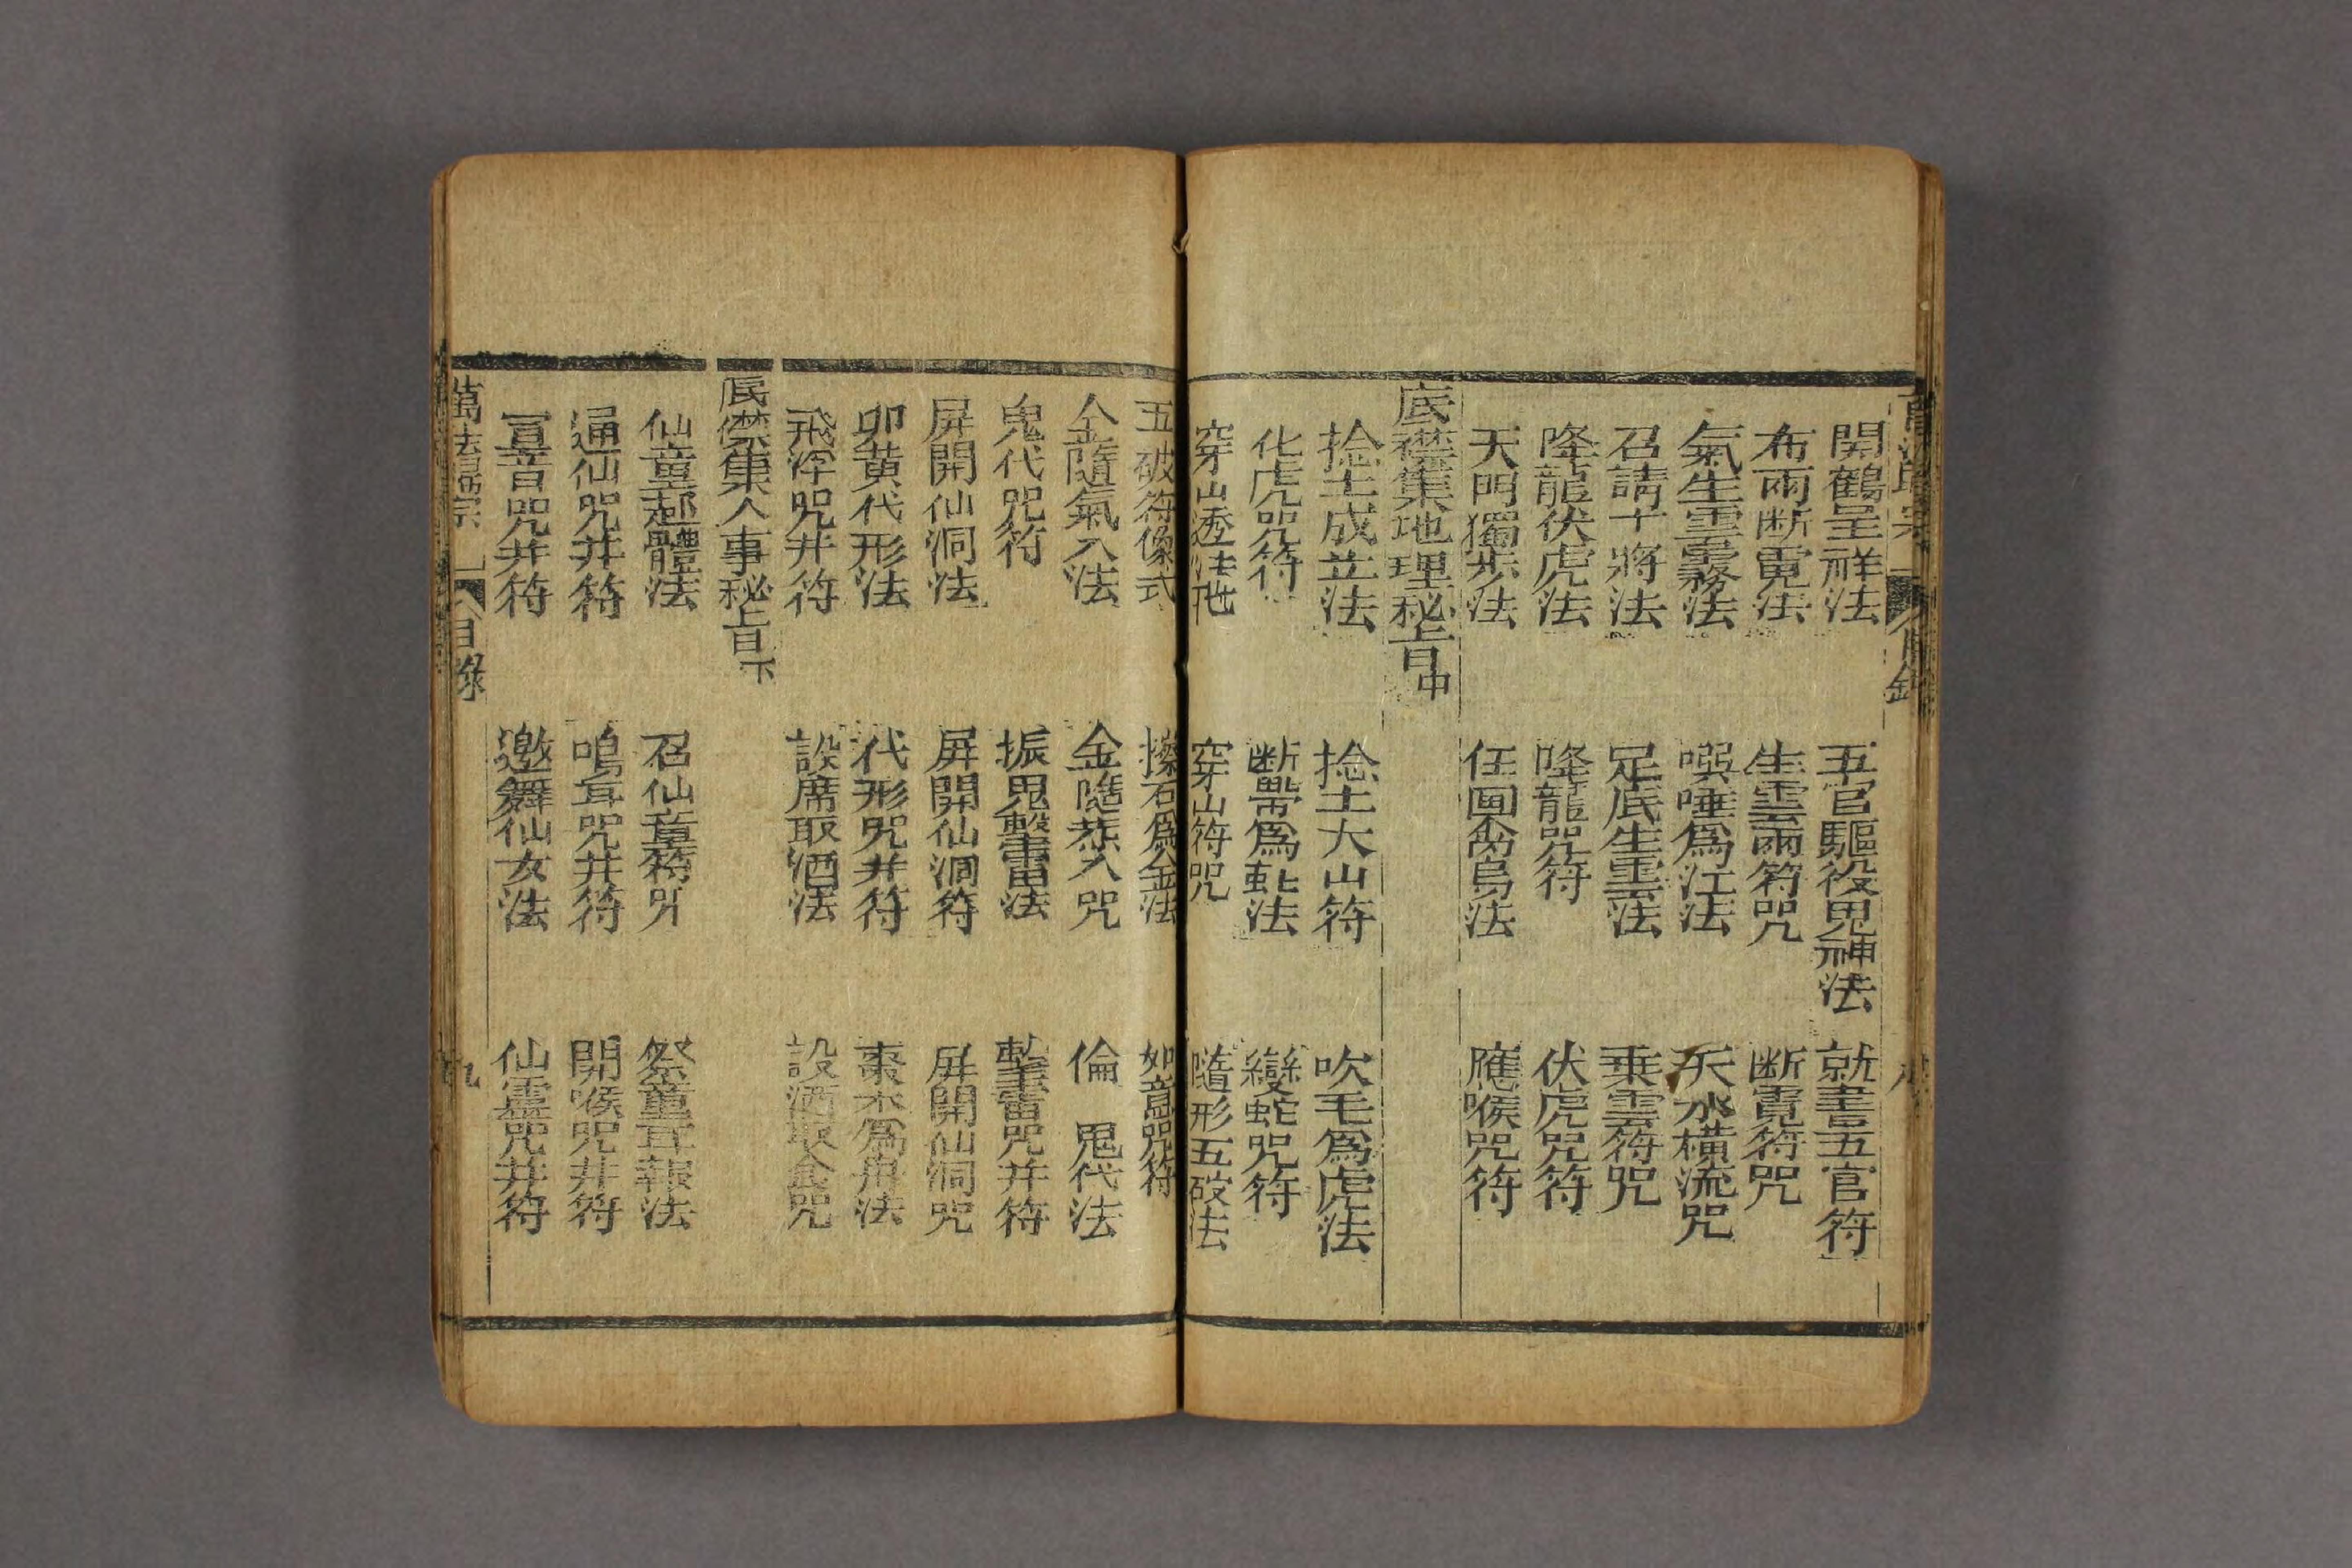 開鶴呈祥法 五官驅役鬼神法 就書五官符
布雨断霓法 生雲雨符咒 断霓符咒
氣生雲霧法 噀唾為江法 天水橫流咒
召請十將法 足底生雲法 乗雲符咒
降龍伏虎法 降龍咒符 伏虎咒符
天門獨步法 任囬喬烏法 應喉咒符
底襟集地理秘旨中
捻土成山法 捻土大山符 吹毛為虎法
化虎咒符 断帶為虵法 變蛇咒符
穿山透法 穿山符咒 隨形五破法
五破符像式 擦石為金法 如意咒符
金隨氣入法 金隨炁入咒 倫鬼代法
鬼代咒符 振鬼擊雷法 擊雷咒并符
屏開仙洞法 屏開仙洞符 屏開仙洞咒
卯黄代形法 代形咒并符 棗木為舟法
飛浮咒并符 設席取酒法 設酒取食咒
底襟集人事秘旨下
仙童起體法 召仙童符咒 祭童耳報法
通仙咒并符 鳴耳咒并符 開喉咒并符
音咒并符 邀舞仙女法 仙靈咒并符
萬法歸宗 目錄 九